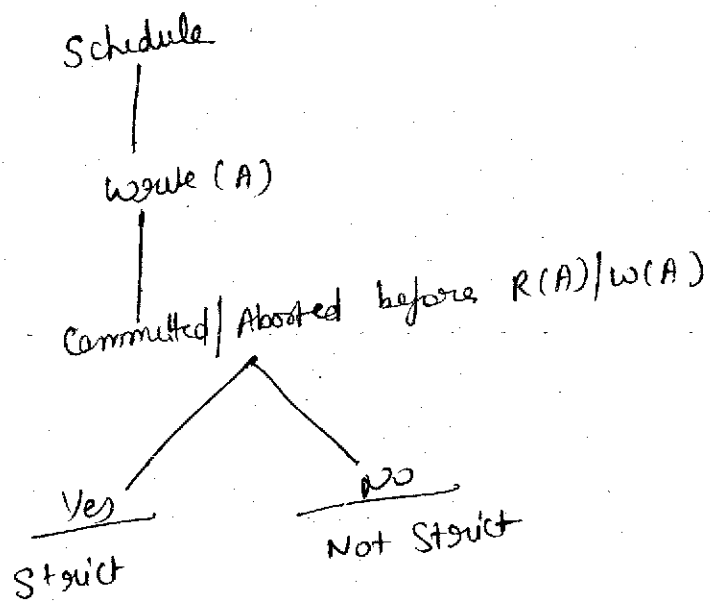 Schedule
Write (A)
Committed/Aborted before R(A)/W(A)
Yes
No
Strict
Not Strict